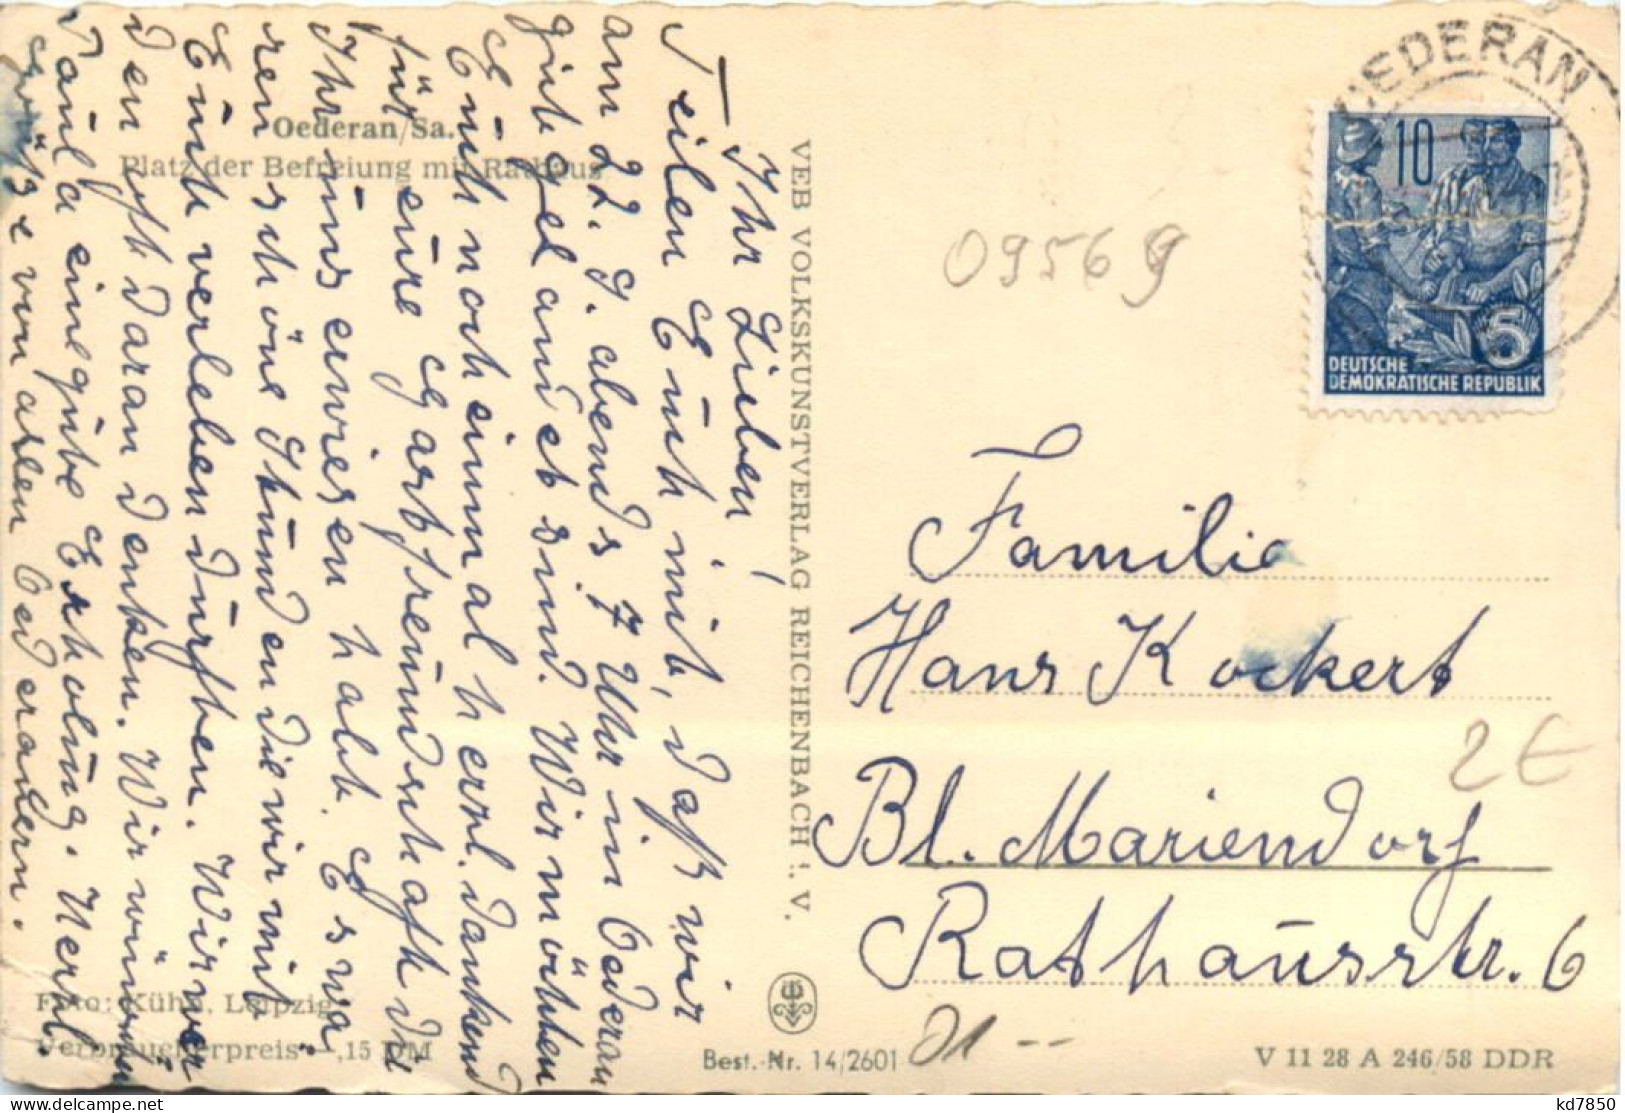 Oederan/Sa.
Platz der Befreiung mit Rathaus
Ihr Lieben!
Teilen Euch mit, daß wir
am 22. 9. abends 7 Uhr in Oederan
gut gelandet sind. Wir möchten
Euch noch einmal herzl. dankend
für eure Gastfreundschaft die
Ihr uns erwiesen habt. Es wa
ren schöne Stunden die wir mit
Euch verleben durften. Wir wer
den oft daran denken. Wir wünschen
Paula eine gute Erholung. Herzl.
Grüße von allen Oederanern.
Foto: Kühn, Leipzig
Verbraucherpreis —,15 DM
VEB VOLKSKUNSTVERLAG REICHENBACH i. V.
Best.-Nr. 14/2601
V 11 28 A 246/58 DDR
OEDERAN
10
5
DEUTSCHE
DEMOKRATISCHE REPUBLIK
09569
Familie
Hans Kockert
Bl. Mariendorf
Rathausstr. 6
2€
01--
kd7850